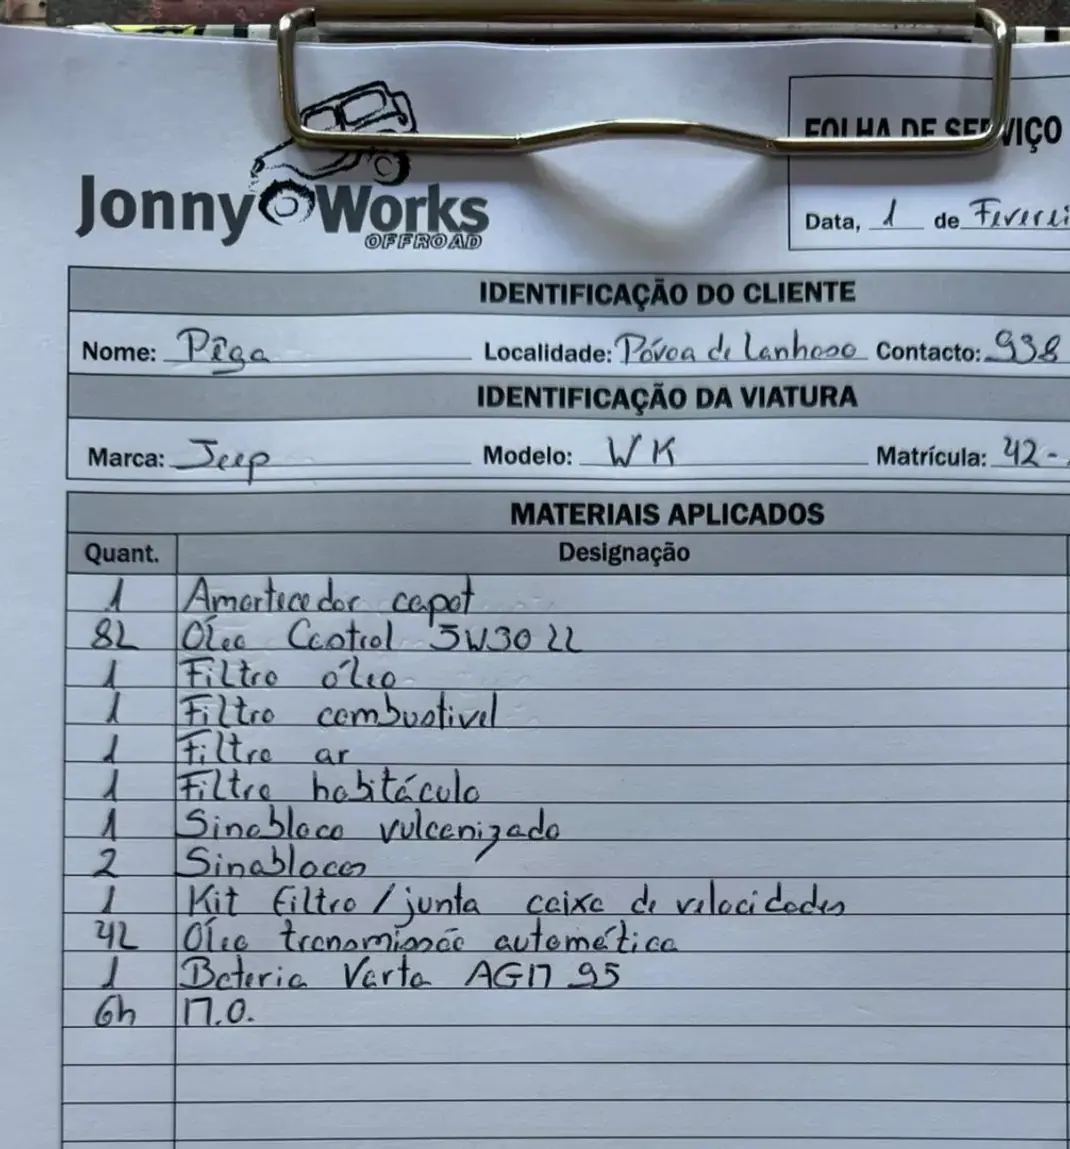 Jonny Works
OFFROAD
FOLHA DE SERVIÇO
Data, 1 de Feverei
IDENTIFICAÇÃO DO CLIENTE
Nome: Pêga Localidade: Póvoa de Lanhoso Contacto: 938
IDENTIFICAÇÃO DA VIATURA
Marca: Jeep Modelo: WK Matrícula: 42-
MATERIAIS APLICADOS
Quant. Designação
1 Amortecedor capot
8L Óleo Castrol 5W30 LL
1 Filtro óleo
1 Filtro combustivel
1 Filtro ar
1 Filtro habitáculo
1 Sinobloco vulcanizado
2 Sinoblocos
1 Kit filtro/junta caixa de velocidades
4L Óleo transmissão automática
1 Bateria Varta AGM 95
6h M.O.